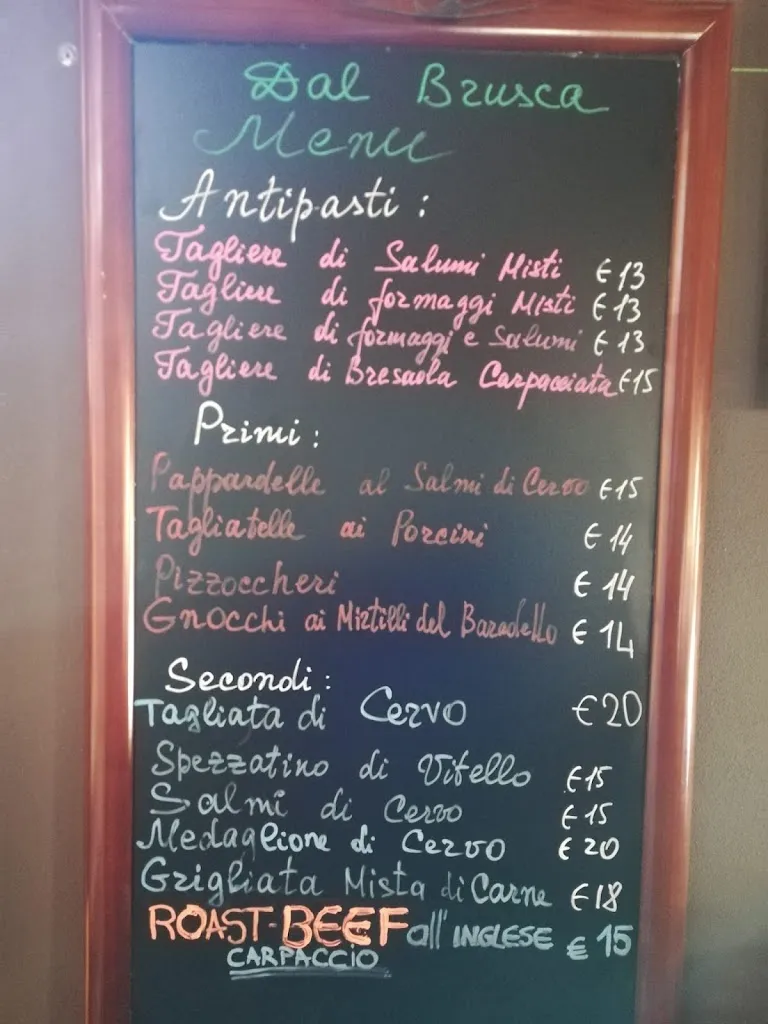 Dal Brusca
Menu
Antipasti :
Tagliere di Salumi Misti €13
Tagliere di formaggi Misti €13
Tagliere di formaggi e Salumi €13
Tagliere di Bresaola Carpacciata €15
Primi :
Pappardelle al Salmi di Cervo €15
Tagliatelle ai Porcini €14
Pizzoccheri €14
Gnocchi ai Mirtilli del Baradello €14
Secondi :
Tagliata di Cervo €20
Spezzatino di Vitello €15
Salmi di Cervo €15
Medaglione di Cervo €20
Grigliata Mista di Carne €18
ROAST-BEEF all'INGLESE €15
CARPACCIO